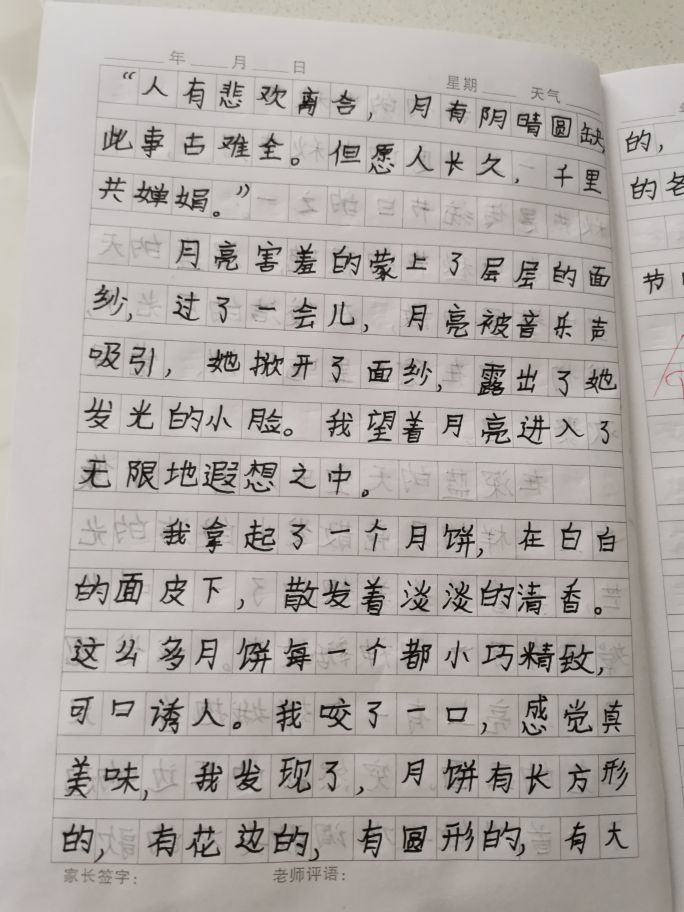 年 月 日
星期 天气
“人有悲欢离合，月有阴晴圆缺，
此事古难全。但愿人长久，千里
共婵娟。”
月亮害羞的蒙上了层层的面
纱，过了一会儿，月亮被音乐声
吸引，她掀开了面纱，露出了她
发光的小脸。我望着月亮进入了
无限地遐想之中。
我拿起了一个月饼，在白白
的面皮下，散发着淡淡的清香。
这么多月饼每一个都小巧精致，
可口诱人。我咬了一口，感觉真
美味，我发现了，月饼有长方形
的，有花边的，有圆形的，有大
家长签字： 老师评语：
的，
的各
节